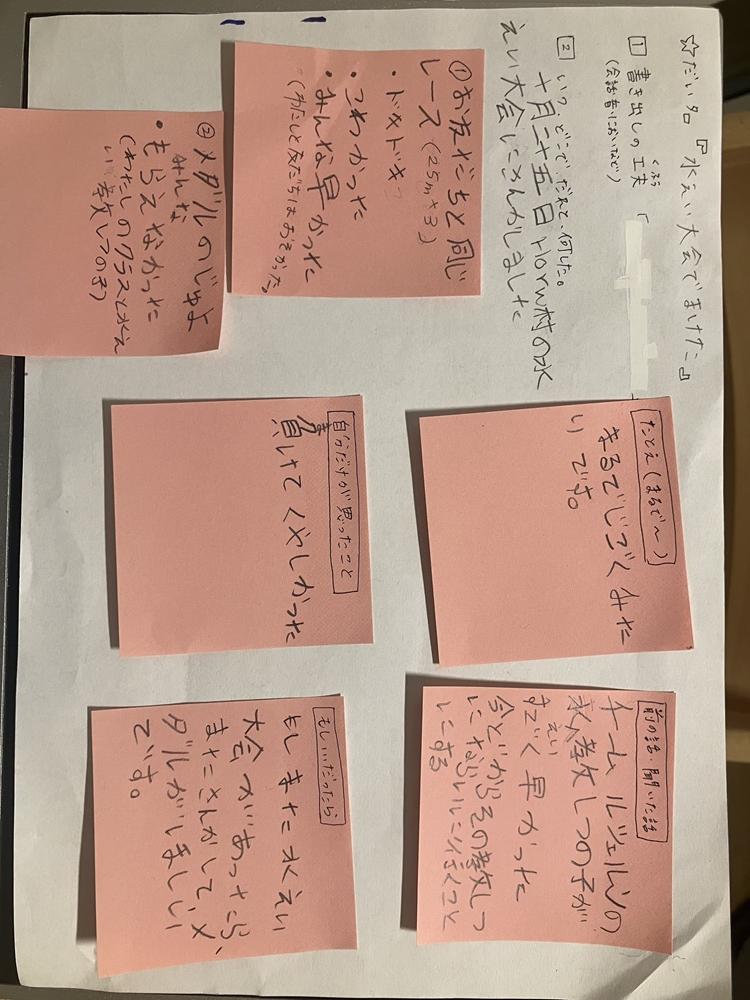 ☆だい名『水えい大会でまけた』
1 書き出しの工夫「
くふう
(会話・音・においなど)
2 いつ、どこで、だれと、何した。
十月二十五日 Horw村の水
えい大会にさんかしました
①お友だちと同じ
レース(25m×3)
・ドキドキ
・こわかった
・みんな早かった
(わたしと友だちはおそかった)
②メダルのじゅよ
みんな
・もらえなかった
(わたしのクラスと水え
い教しつの子)
たとえ(まるで〜)
まるでじごくみた
いです。
前の話・聞いた話
チームルツェルンの
水えい教しつの子が
すごく早かった
今どからその教しつ
にならいに行くこと
にする
自分だけが思ったこと
ま
負けてくやしかった
もし〜だったら
もしまた水えい
大会があったら、
またさんかしてメ
ダルがほしい
です。